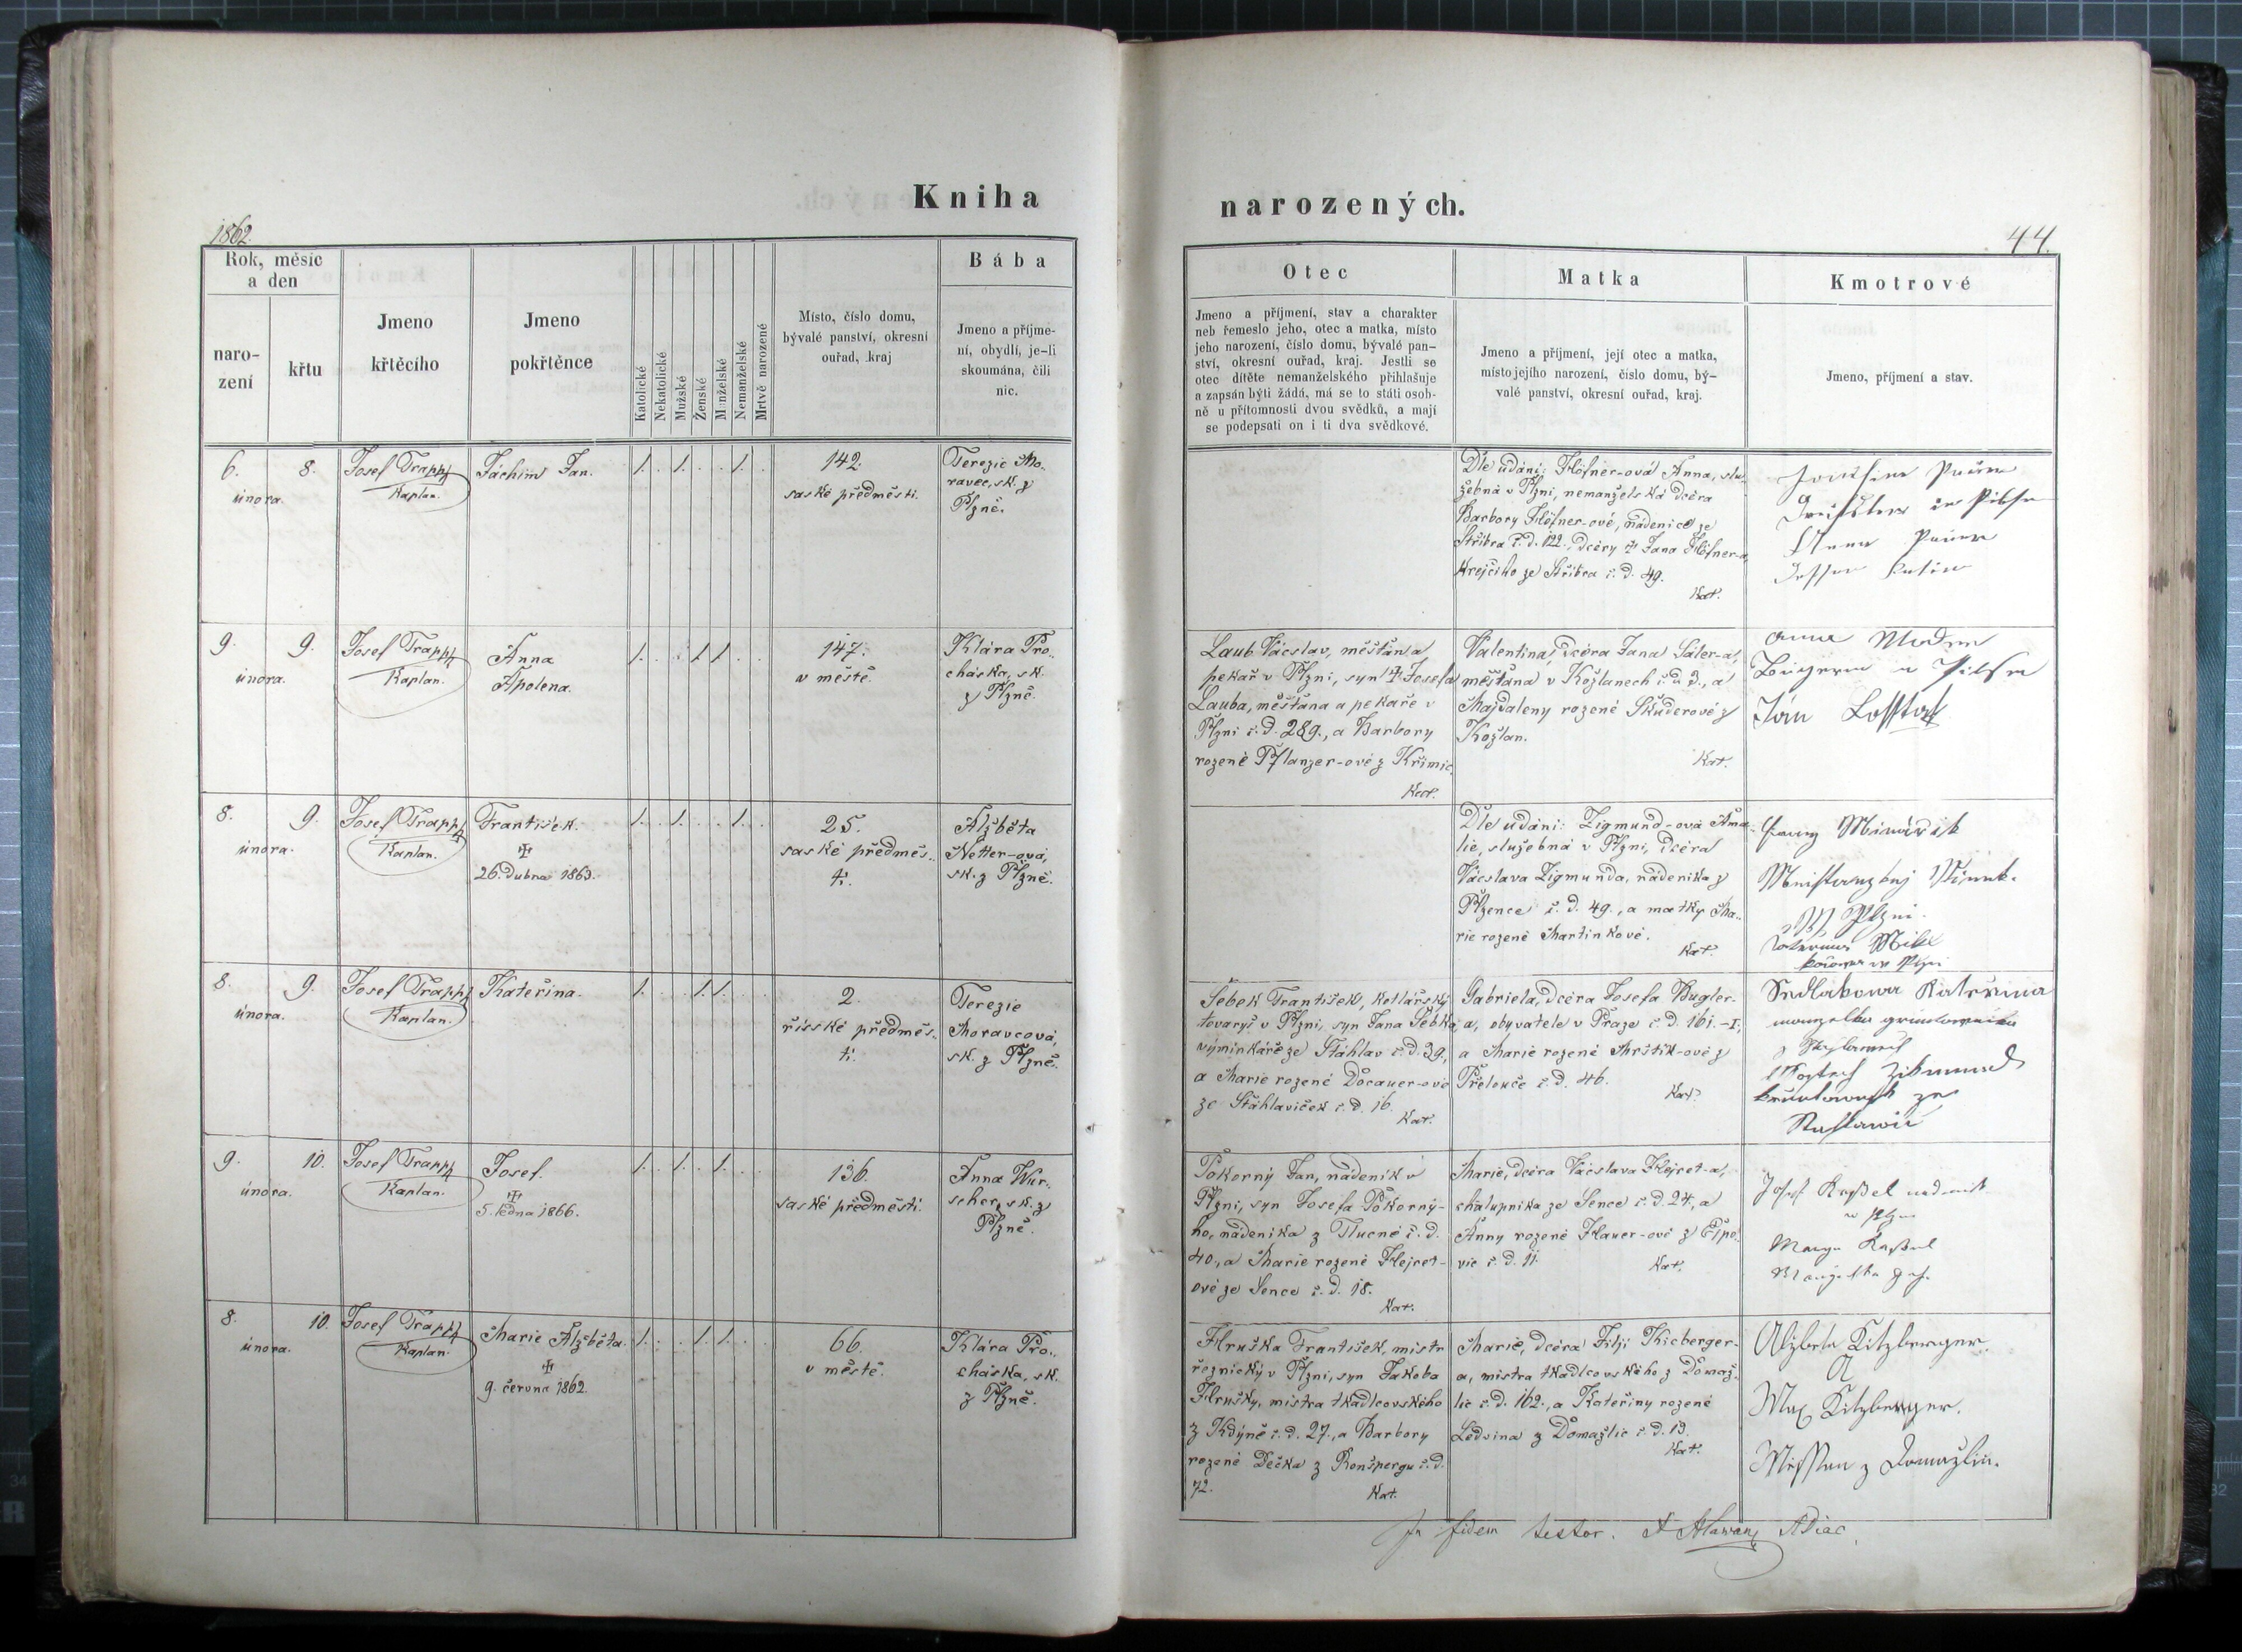 Kniha
narozených.
1862.
44
Rok, měsíc
a den
naro-
zení
křtu
Jmeno
křtěcího
Jmeno
pokřtěnce
Katolické
Nekatolické
Mužské
Ženské
Manželské
Nemanželské
Mrtvě narozené
Místo, číslo domu,
bývalé panství, okresní
ouřad, kraj
Bába
Jmeno a příjme-
ní, obydlí, je-li
skoumána, čili
nic.
Otec
Jmeno a příjmení, stav a charakter
neb řemeslo jeho, otec a matka, místo
jeho narození, číslo domu, bývalé pan-
ství, okresní ouřad, kraj. Jestli se
otec dítěte nemanželského přihlašuje
a zapsán býti žádá, má se to státi osob-
ně u přítomnosti dvou svědků, a mají
se podepsati on i ti dva svědkové.
Matka
Jmeno a příjmení, její otec a matka,
místo jejího narození, číslo domu, bý-
valé panství, okresní ouřad, kraj.
Kmotrové
Jmeno, příjmení a stav.
6. 8.
února.
Josef Trapp
Kaplan.
Jáchim Jan.
1. 1. 1.
142.
saské předměstí.
Terezie Mo-
ravec, sk. z
Plzně.
Dle udání: Höfner-ová Anna, slu-
žebná v Plzni, nemanželská dcéra
Barbory Höfner-ové, nádenice ze
Stříbra č. d. 122., dcéry † Jana Höfner-a,
krejčího ze Stříbra č. d. 49.
Kat.
9. 9.
února.
Josef Trapp
Kaplan.
Anna
Apolena.
1. 1. 1.
147.
v městě.
Klára Pro-
cháska, sk.
z Plzně.
Laub Václav, měšťan a
pekař v Plzni, syn † Josefa
Lauba, měšťana a pekaře v
Plzni č. d. 289., a Barbory
rozené Pflanzer-ové z Křimic.
Kat.
Valentina, dcéra Jana Sáler-a,
měšťana v Kožlanech č. d. 3., a
Majdaleny rozené Škuderové z
Kožlan.
Kat.
8. 9.
února.
Josef Trapp
Kaplan.
František.
✠
26. dubna 1863.
1. 1. 1.
25.
saské předměs-
tí.
Alžběta
Netter-ová,
sk. z Plzně.
Dle udání: Zigmund-ová Ama-
lie, služebná v Plzni, dcéra
Václava Zigmunda, nádeníka z
Plzence č. d. 49., a matky Ma-
rie rozené Martinkové.
Kat.
8. 9.
února.
Josef Trapp
Kaplan.
Kateřina.
1. 1. 1.
2.
říšské předměs-
tí.
Terezie
Moravcová,
sk. z Plzně.
Šebek František, kotlářský
tovaryš v Plzni, syn Jana Šebka,
výminkáře ze Štáhlav č. d. 39.,
a Marie rozené Docauer-ové
ze Štáhlaviček č. d. 16.
Kat.
Gabriela, dcéra Josefa Bugler-
a, obyvatele v Praze č. d. 161.-I,
a Marie rozené Mrštik-ové z
Přelouče č. d. 46.
Kat.
Sedlakowa Kateřina
9. 10.
února.
Josef Trapp
Kaplan.
Josef.
✠
5. ledna 1866.
1. 1. 1.
136.
saské předměstí.
Anna Wur-
scher, sk. z
Plzně.
Pokorný Jan, nádeník v
Plzni, syn Josefa Pokorný-
ho, nádeníka z Tlucné č. d.
40., a Marie rozené Hejret-
ové ze Sence č. d. 18.
Kat.
Marie, dcéra Václava Hejret-a,
chalupníka ze Sence č. d. 24., a
Anny rozené Hauer-ové z Ejpo-
vic č. d. 11.
Kat.
8. 10.
února.
Josef Trapp
Kaplan.
Marie Alžběta.
✠
9. června 1862.
1. 1. 1.
66.
v městě.
Klára Pro-
cháska, sk.
z Plzně.
Hruška František, mistr
řeznický v Plzni, syn Jakoba
Hrušky, mistra tkadlcovského
z Kdýně č. d. 27., a Barbory
rozené Dečka z Ronšpergu č. d.
72.
Kat.
Marie, dcéra Filjí Kicberger-
a, mistra tkadlcovského z Domaž-
lic č. d. 162., a Kateřiny rozené
Ledvina z Domažlic č. d. 13.
Kat.
Alžběta Kitzberger.
Max Kitzberger.
z Domažlic.
In fidem testor.